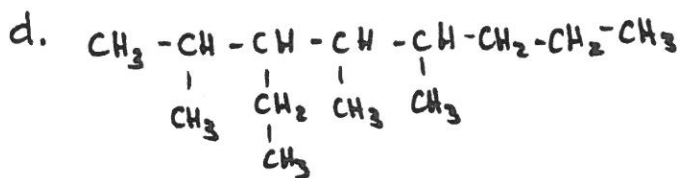 d. CH₃-CH-CH-CH-CH-CH₂-CH₂-CH₃
CH₃ CH₂ CH₃ CH₃
CH₃